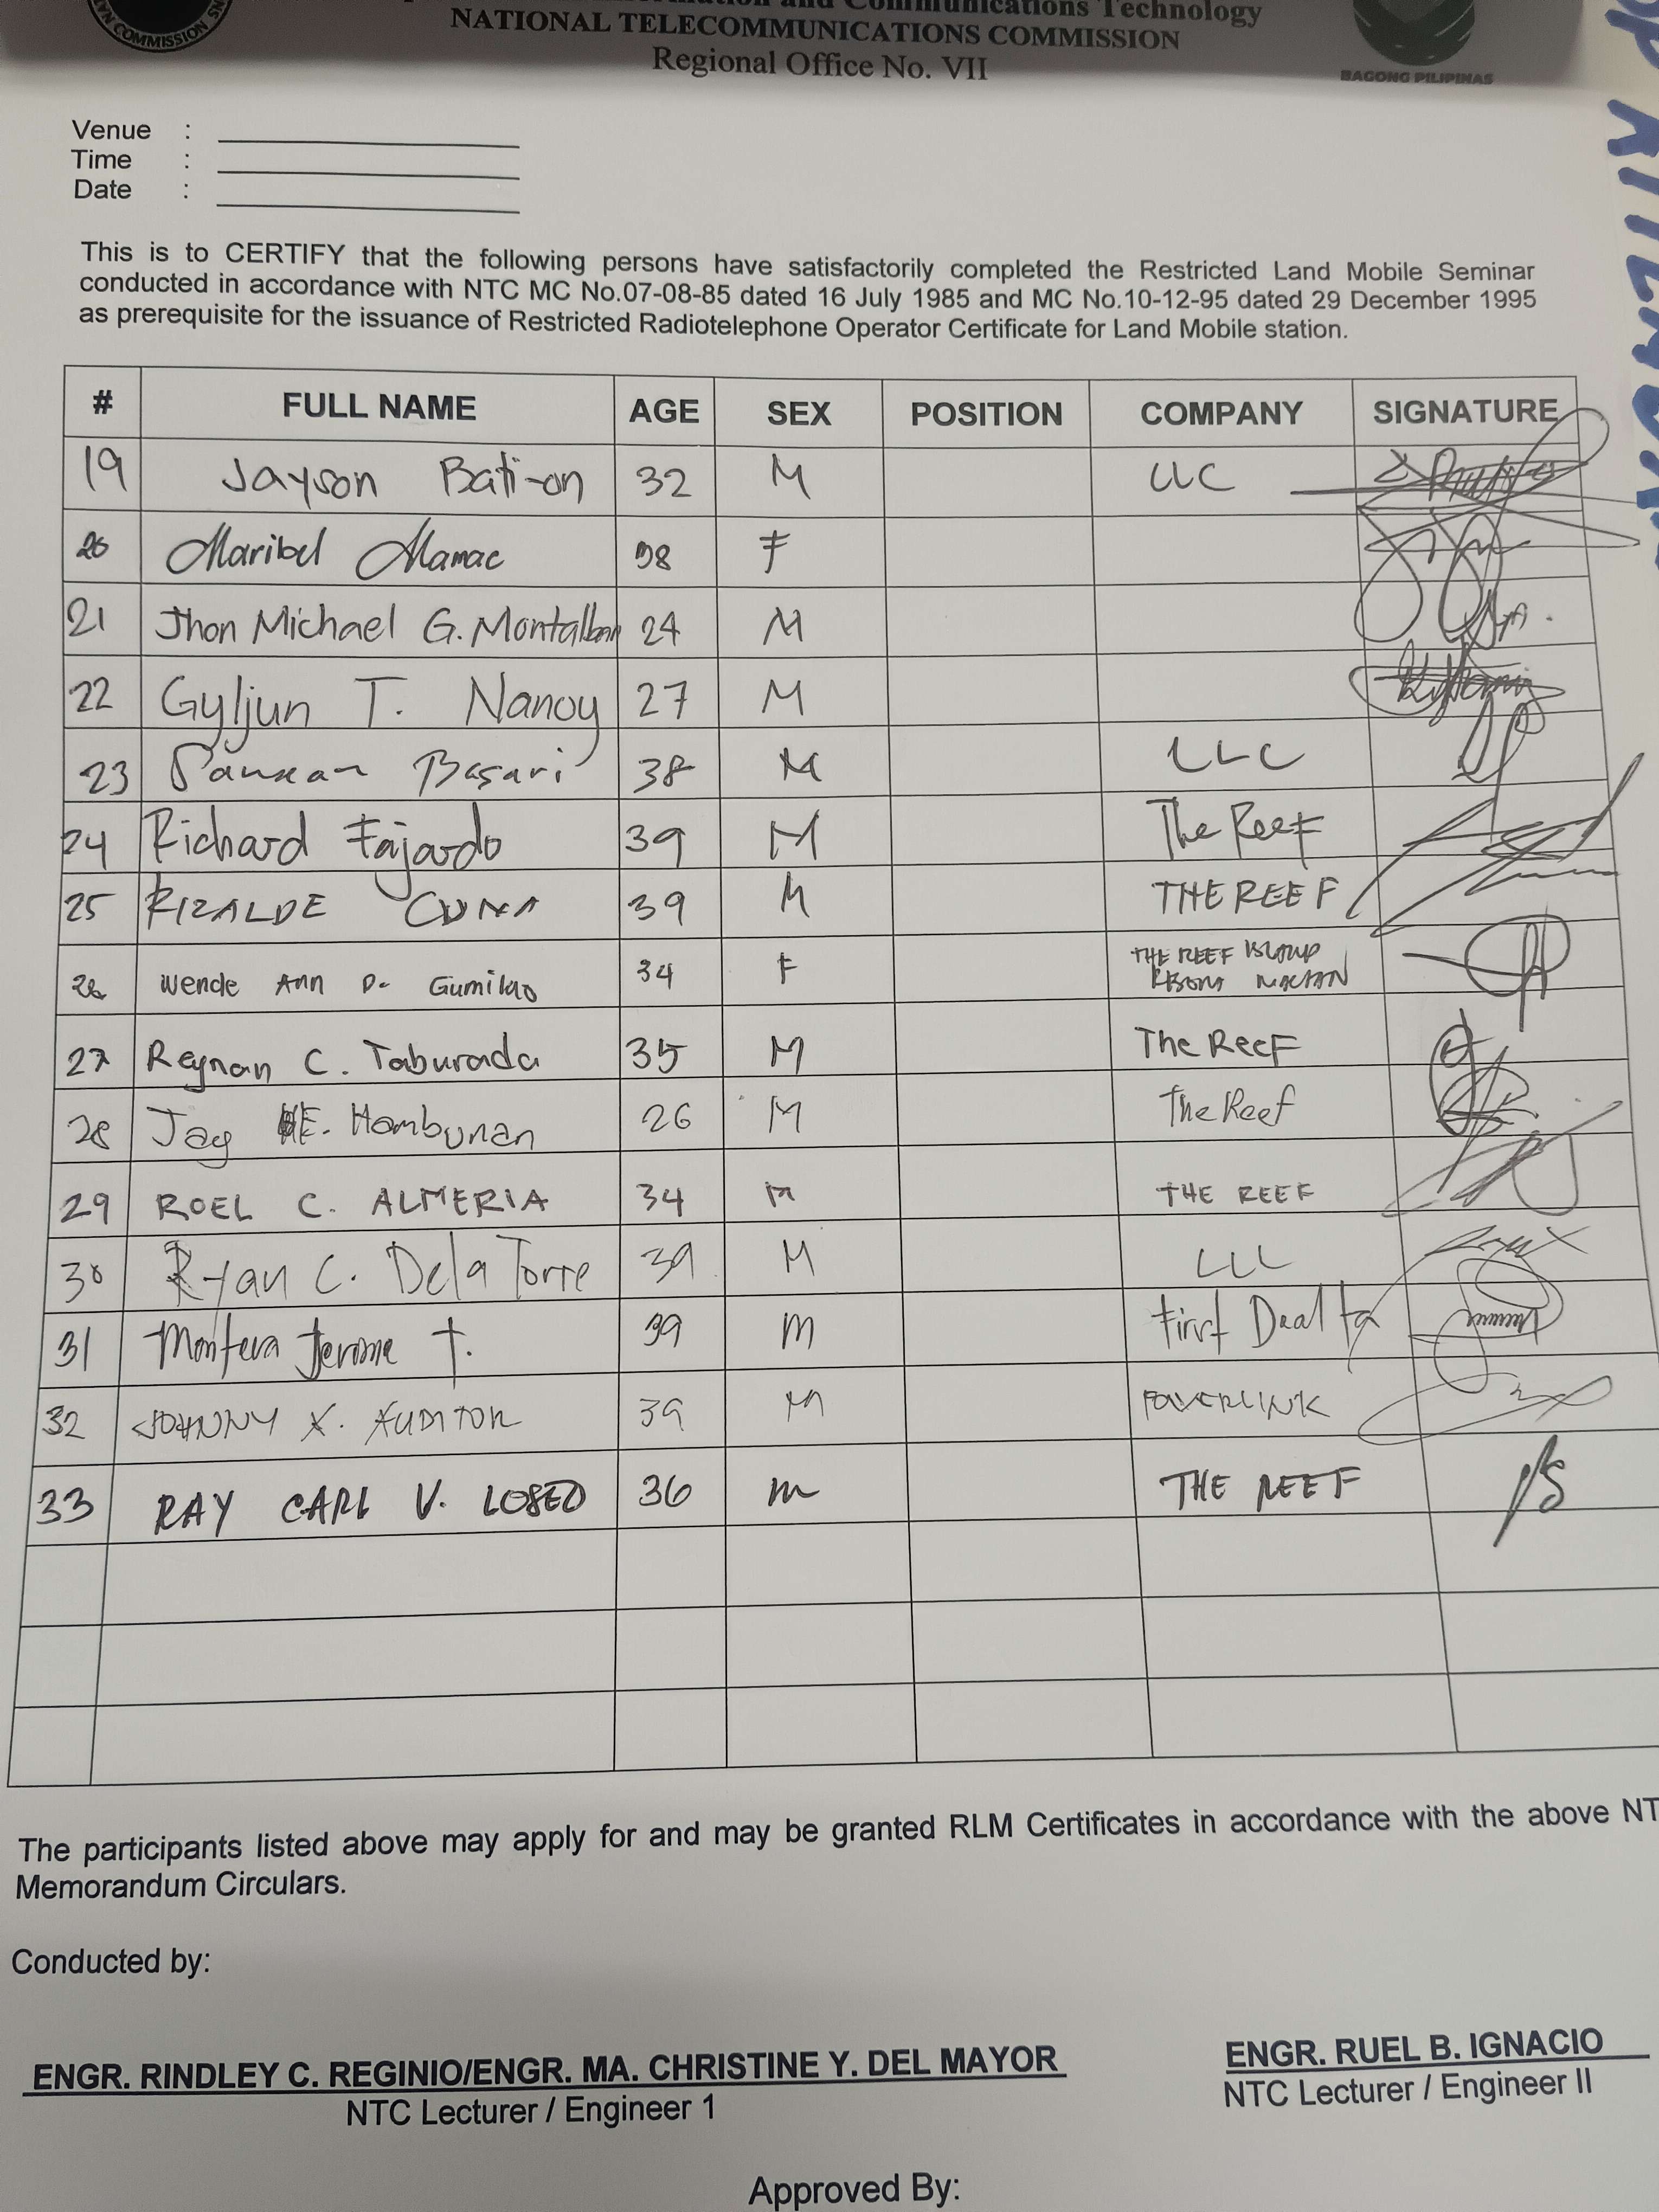 Communications Technology
NATIONAL TELECOMMUNICATIONS COMMISSION
Regional Office No. VII
COMMISSION
BAGONG PILIPINAS
Venue :
Time :
Date :
This is to CERTIFY that the following persons have satisfactorily completed the Restricted Land Mobile Seminar
conducted in accordance with NTC MC No.07-08-85 dated 16 July 1985 and MC No.10-12-95 dated 29 December 1995
as prerequisite for the issuance of Restricted Radiotelephone Operator Certificate for Land Mobile station.
# FULL NAME AGE SEX POSITION COMPANY SIGNATURE
19 Jayson Bati-on 32 M LLC
20 Maribel Mamac 38 F
21 Jhon Michael G. Montalban 24 M
22 Gyljun T. Nanoy 27 M
23 Basari 38 M LLC
24 Richard Fajardo 39 M The Reef
25 RIZALDE CUNA 39 M THE REEF
26 Wende Ann D. Gumilao 34 F THE REEF ISLAND
27 Reynan C. Taburada 35 M The Reef
28 Jay E. Hambunan 26 M The Reef
29 ROEL C. ALMERIA 34 M THE REEF
30 Ryan C. Dela Torre 39 M LLC
31 Jerome T. 39 M First
32 JOHNNY X. AUDITOR 39 M POWERLINK
33 RAY CARL V. LOSED 36 M THE REEF
The participants listed above may apply for and may be granted RLM Certificates in accordance with the above NT
Memorandum Circulars.
Conducted by:
ENGR. RINDLEY C. REGINIO/ENGR. MA. CHRISTINE Y. DEL MAYOR
NTC Lecturer / Engineer 1
ENGR. RUEL B. IGNACIO
NTC Lecturer / Engineer II
Approved By: